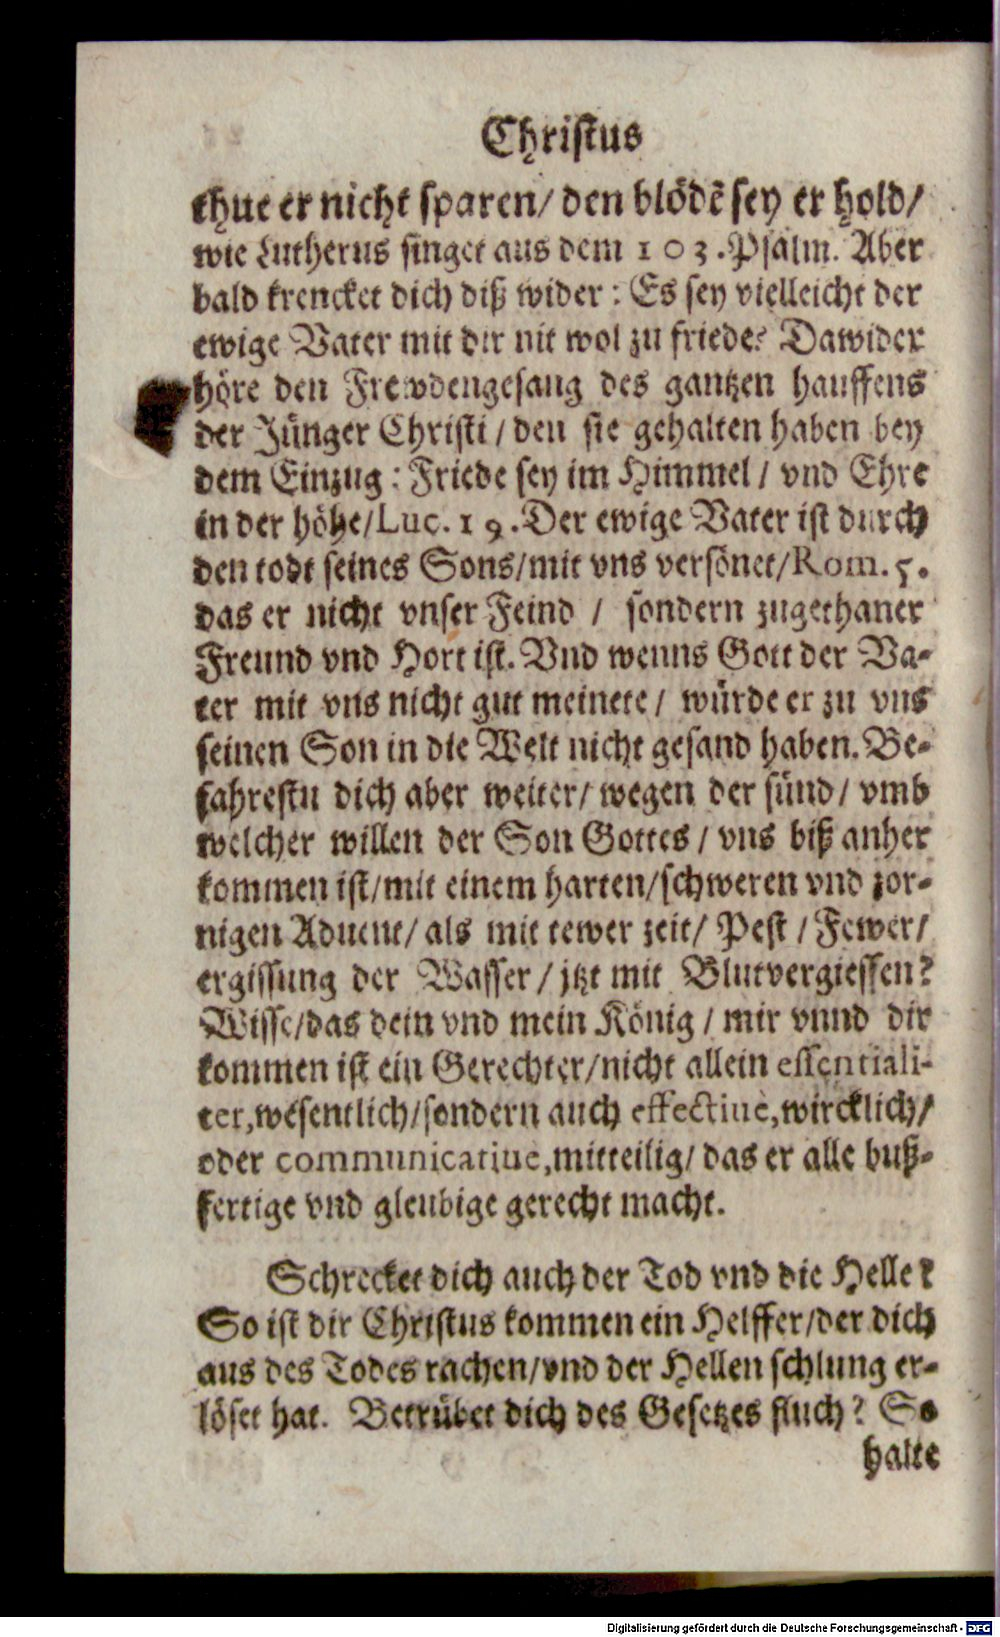 Christus
thut er nicht sparen/ den blödẽ sey er hold/
wie Lutherus singet aus dem 103. Psalm. Aber
bald krencket dich diß wider: Es sey vielleicht der
ewige Vater mit dir nit wol zu friede? Dawider
höre den Frewdengesang des gantzen hauffens
der Jünger Christi/ den sie gehalten haben bey
dem Einzug: Friede sey im Himmel/ vnd Ehre
in der höhe/ Luc. 19. Der ewige Vater ist durch
den todt seines Sons/ mit vns versönet/ Rom. 5.
das er nicht vnser Feind / sondern zugethaner
Freund vnd Hort ist. Vnd wenns Gott der Va-
ter mit vns nicht gut meinete/ würde er zu vns
seinen Son in die Welt nicht gesand haben. Be-
fahrestu dich aber weiter/ wegen der sünd/ vmb
welcher willen der Son Gottes/ vns biß anher
kommen ist/ mit einem harten/ schweren vnd zor-
nigen Aduent/ als mit tewer zeit/ Pest / Fewer/
ergissung der Wasser/ jtzt mit Blutvergiessen?
Wisse/ das dein vnd mein König/ mir vnnd dir
kommen ist ein Gerechter/ nicht allein essentiali-
ter, wesentlich/ sondern auch effectiuè, wircklich/
oder communicatiue, mitteilig/ das er alle buß-
fertige vnd gleubige gerecht macht.
Schrecket dich auch der Tod vnd die Helle?
So ist dir Christus kommen ein Helffer/ der dich
aus des Todes rachen/ vnd der Hellen schlung er-
löset hat. Betrübet dich des Gesetzes fluch? So
halte
Digitalisierung gefördert durch die Deutsche Forschungsgemeinschaft - DFG